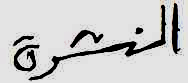 النشرة